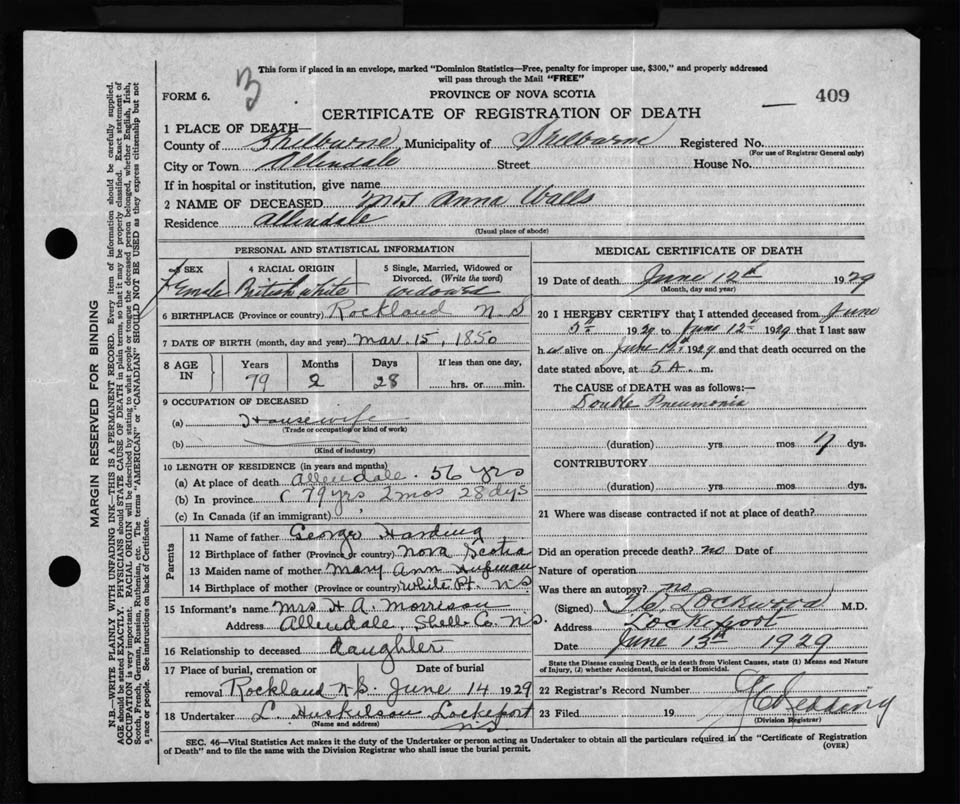 This form if placed in an envelope, marked "Dominion Statistics—Free, penalty for improper use, $300," and properly addressed
will pass through the Mail "FREE"
FORM 6. 3 PROVINCE OF NOVA SCOTIA — 409
CERTIFICATE OF REGISTRATION OF DEATH
1 PLACE OF DEATH—
County of Shelburne Municipality of Shelburne Registered No.
(For use of Registrar General only)
City or Town Allendale Street House No.
If in hospital or institution, give name
2 NAME OF DECEASED Mrs Anna Walls
Residence Allendale
(Usual place of abode)
PERSONAL AND STATISTICAL INFORMATION
3 SEX 4 RACIAL ORIGIN 5 Single, Married, Widowed or Divorced. (Write the word)
Female British White Widowed
6 BIRTHPLACE (Province or country) Rockland N.S
7 DATE OF BIRTH (month, day and year) Mar. 15, 1850
8 AGE IN Years Months Days If less than one day,
79 2 28 hrs. or min.
9 OCCUPATION OF DECEASED
(a) Housewife
(Trade or occupation or kind of work)
(b)
(Kind of industry)
10 LENGTH OF RESIDENCE (in years and months)
(a) At place of death Allendale. 56 yrs
(b) In province 79 yrs 2 mos 28 dys
(c) In Canada (if an immigrant)
Parents
11 Name of father George Harding
12 Birthplace of father (Province or country) Nova Scotia
13 Maiden name of mother Mary Ann
14 Birthplace of mother (Province or country) White Pt. N.S.
15 Informant's name Mrs H A. Morrison
Address Allendale, Shelb. Co. N.S.
16 Relationship to deceased daughter
17 Place of burial, cremation or removal Date of burial
Rockland N.S. June 14 1929
18 Undertaker L. Huskilson Lockeport
(Name and address) N.S.
MEDICAL CERTIFICATE OF DEATH
19 Date of death June 12th 1929
(Month, day and year)
20 I HEREBY CERTIFY that I attended deceased from June
5th 1929 to June 12th 1929 that I last saw
h er alive on June 12th 1929 and that death occurred on the
date stated above, at 5 A. m.
The CAUSE of DEATH was as follows:—
Double Pneumonia
(duration) yrs. mos 7 dys.
CONTRIBUTORY
(duration) yrs. mos. dys.
21 Where was disease contracted if not at place of death?
Did an operation precede death? no Date of
Nature of operation
Was there an autopsy? no
(Signed) Lockwood M.D.
Address Lockeport
Date June 13th 1929
State the Disease causing Death, or in death from Violent Causes, state (1) Means and Nature
of Injury, (2) whether Accidental, Suicidal or Homicidal.
22 Registrar's Record Number
23 Filed 19 Redding
(Division Registrar)
SEC. 46—Vital Statistics Act makes it the duty of the Undertaker or person acting as Undertaker to obtain all the particulars required in the "Certificate of Registration
of Death" and to file the same with the Division Registrar who shall issue the burial permit. (OVER)
MARGIN RESERVED FOR BINDING
N.B.—WRITE PLAINLY WITH UNFADING INK—THIS IS A PERMANENT RECORD. Every item of information should be carefully supplied.
AGE should be stated EXACTLY. PHYSICIANS should STATE CAUSE OF DEATH in plain terms, so that it may be properly classified. Exact statement of
OCCUPATION is very important. RACIAL ORIGIN will be described by stating to what people or tongue the deceased person belonged, whether English, Irish,
Scotch, French, German, Russian, Ruthenian, etc. The terms "AMERICAN" or "CANADIAN" SHOULD NOT BE USED as they express citizenship but not
a race or people. See instructions on back of Certificate.